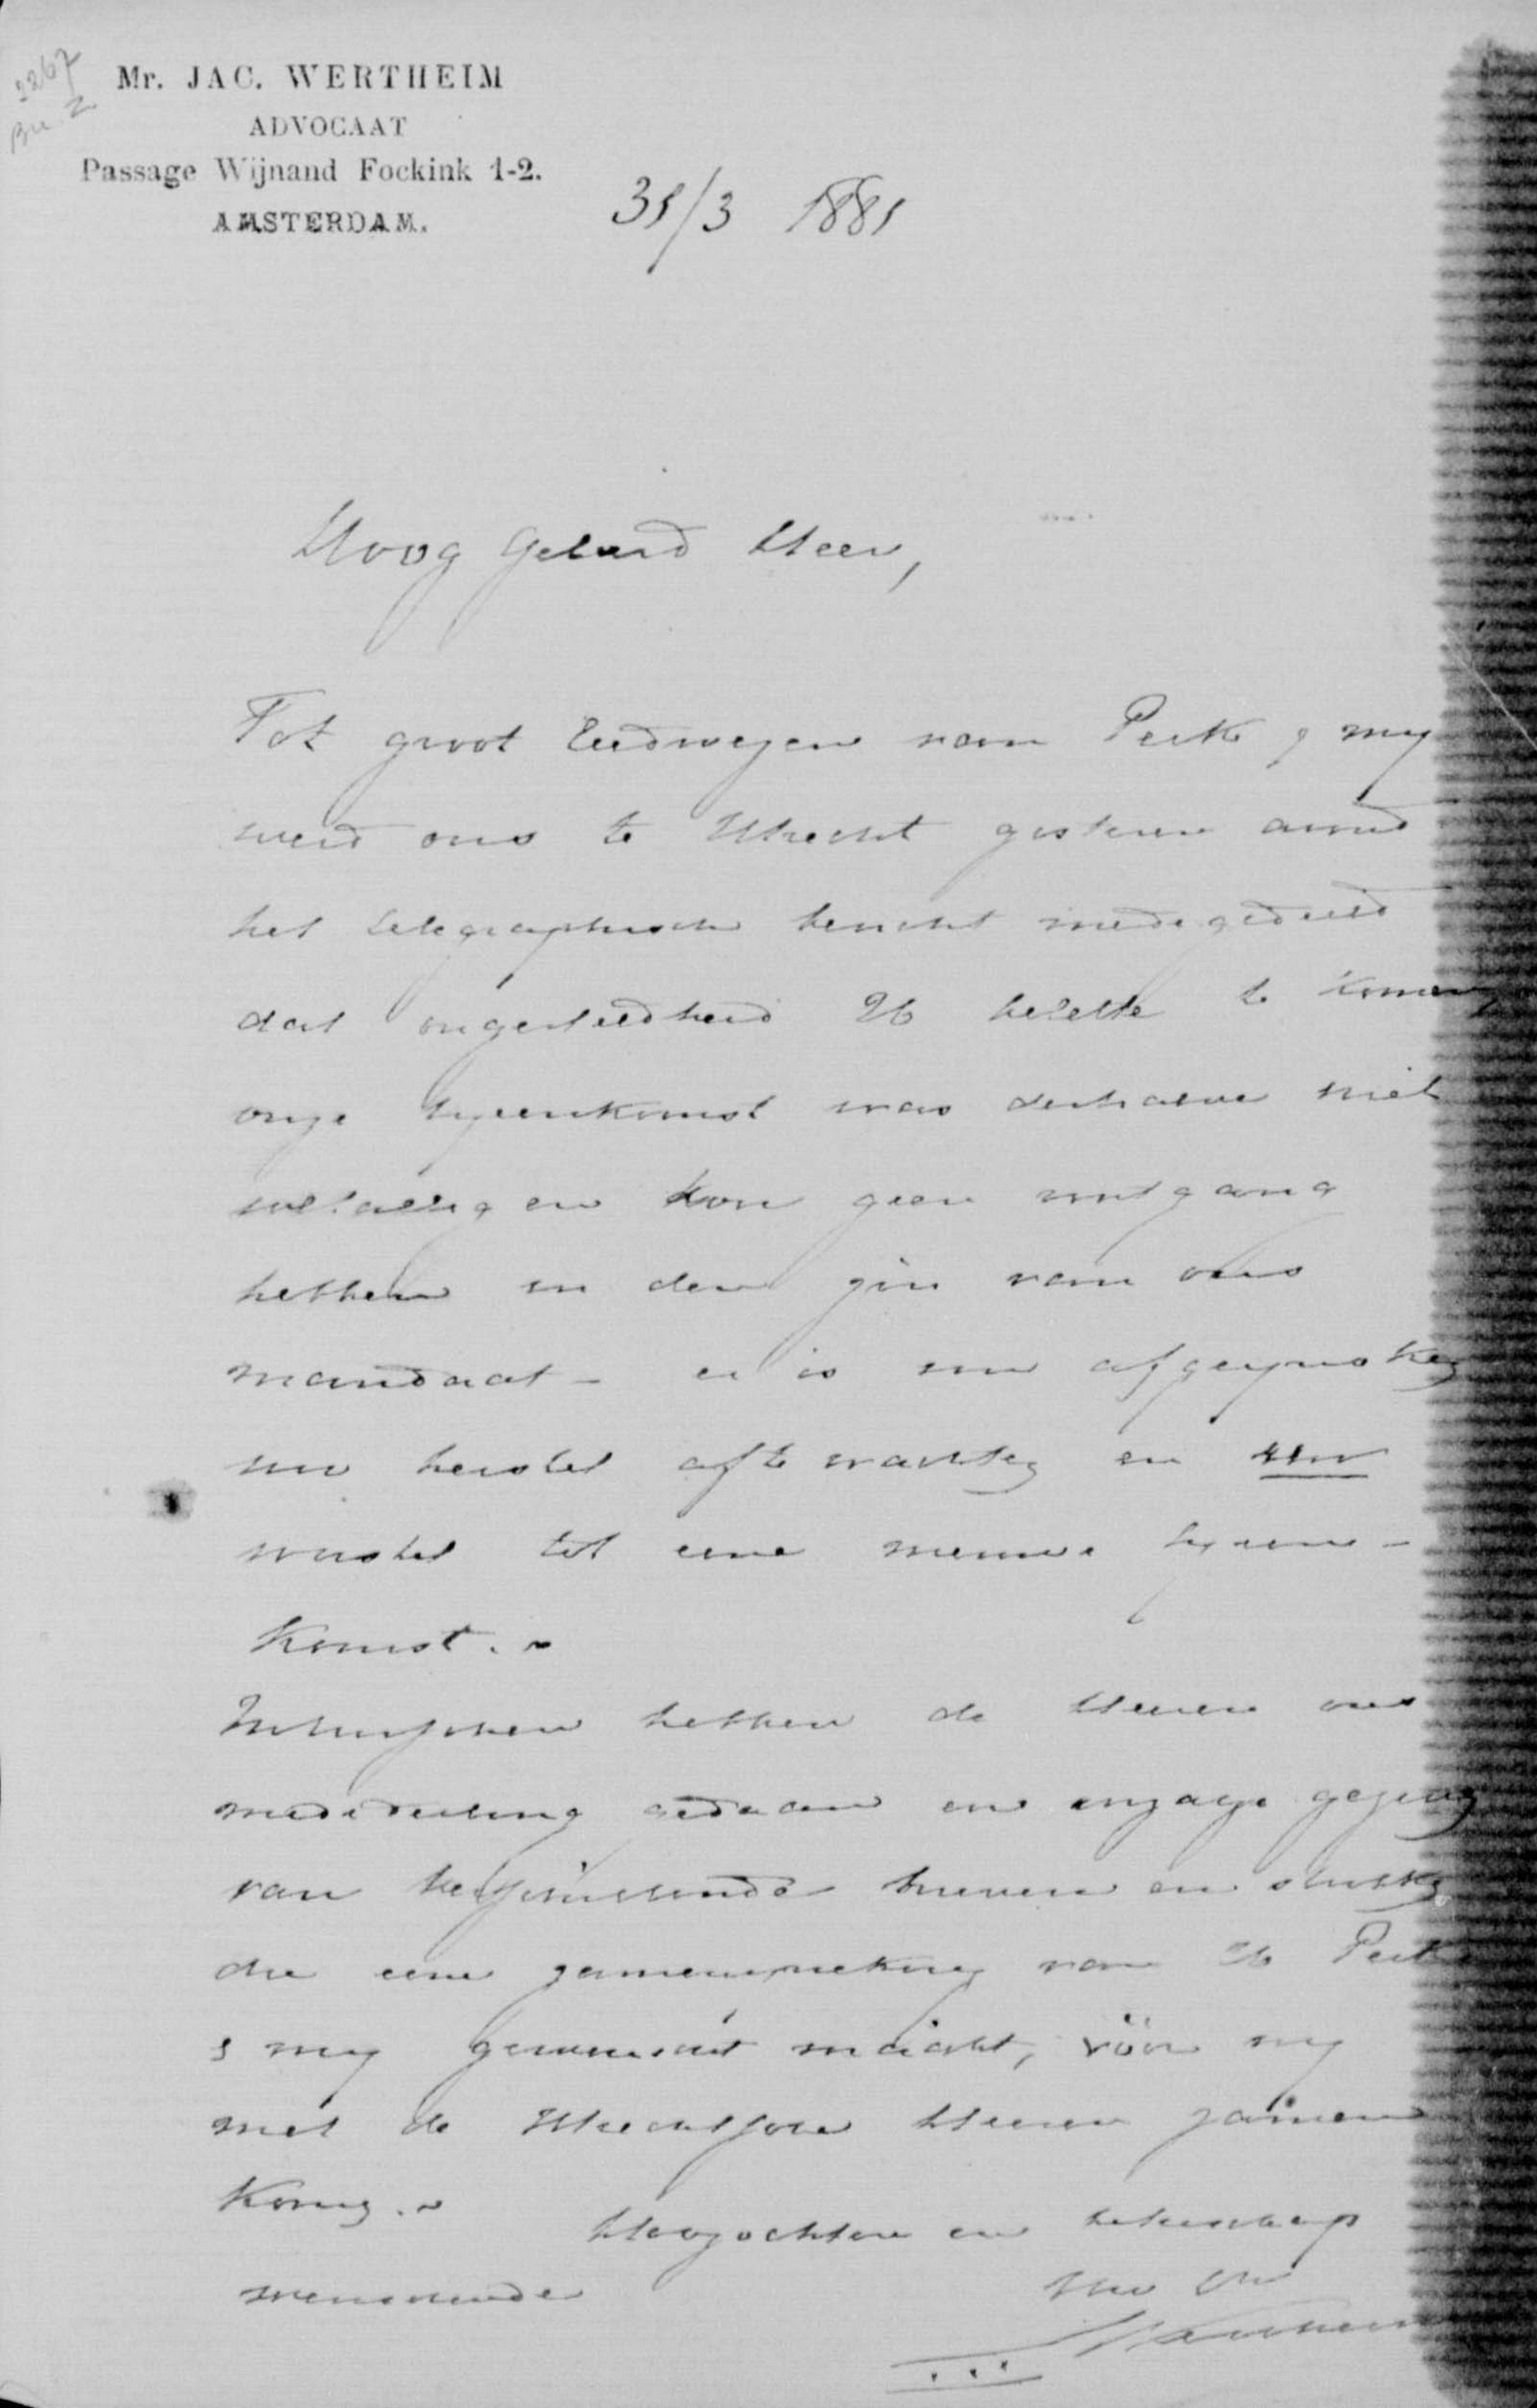 2267
Mr. JAC. WERTHEIM
ADVOCAAT
Passage Wijnand Fockink 1-2.
AMSTERDAM.
31/3 1881
Hoog Geleerd Heer,
Tot groot leedwezen van Perk & my
werd ons te Utrecht gisteren avond
het telegraphisch bericht medegedeeld
dat ongesteldheid U belette te komen
onze byeenkomst was derhalve niet
voltallig en kon geen voortgang
hebben in den zin van ons
mandaat - er is nu afgesproken
uw herstel afte wachten en Uw
voorstel tot eene nieuwe byeen-
komst. -
Intusschen hebben de Heeren ons
mededeeling gedaan en inzage gegeven
van verschillende brieven en stukken
die eene zamenspreking van U Perk
& my gewenscht maakt, vóór wy
met de Utrechtsche Heeren zamen
komen. -
Hoogachten en beterschap
wenschende
Uw Dw
Wertheim